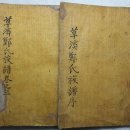 草溪鄭氏族譜卷之
草溪鄭氏族譜序